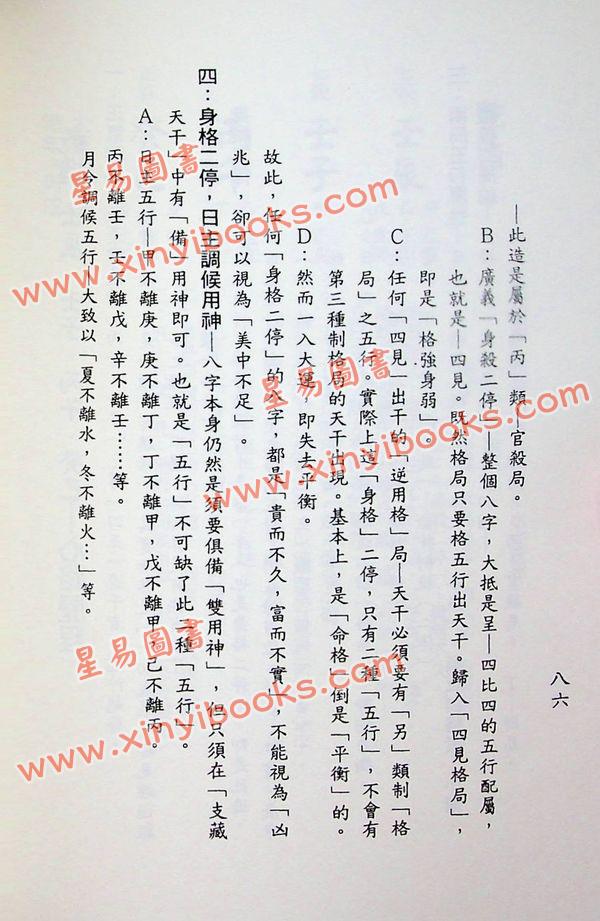 八六
—此造是屬於「丙」類—官殺局。
B：廣義「身殺二停」—整個八字，大抵是呈—四比四的五行配屬，
也就是—四見。既然格局只要格五行出天干。歸入「四見格局」，
即是「格強身弱」。
C：任何「四見」出干的「逆用格」局—天干必須要有「另」類制「格
局」之五行。實際上這「身格」二停，只有二種「五行」，不會有
第三種制格局的天干出現。基本上，是「命格」倒是「平衡」的。
D：然而一入大運，即失去平衡。
故此，任何「身格二停」的八字，都是「貴而不久，富而不實」，不能視為「凶
兆」，卻可以視為「美中不足」。
四：身格二停，日主調候用神—八字本身仍然是須要俱備「雙用神」，但只須在「支藏
天干」中有「備」用神即可。也就是「五行」不可缺了此二種「五行」。
A：日主五行—甲不離庚，庚不離丁，丁不離甲，戊不離甲，己不離丙。
丙不離壬，壬不離戊，辛不離壬……等。
月令調候五行—大致以「夏不離水，冬不離火…」等。
星易圖書
www.xinyibooks.com
星易圖書
www.xinyibooks.com
星易圖書
www.xinyibooks.com
星易圖書
www.xinyibooks.com